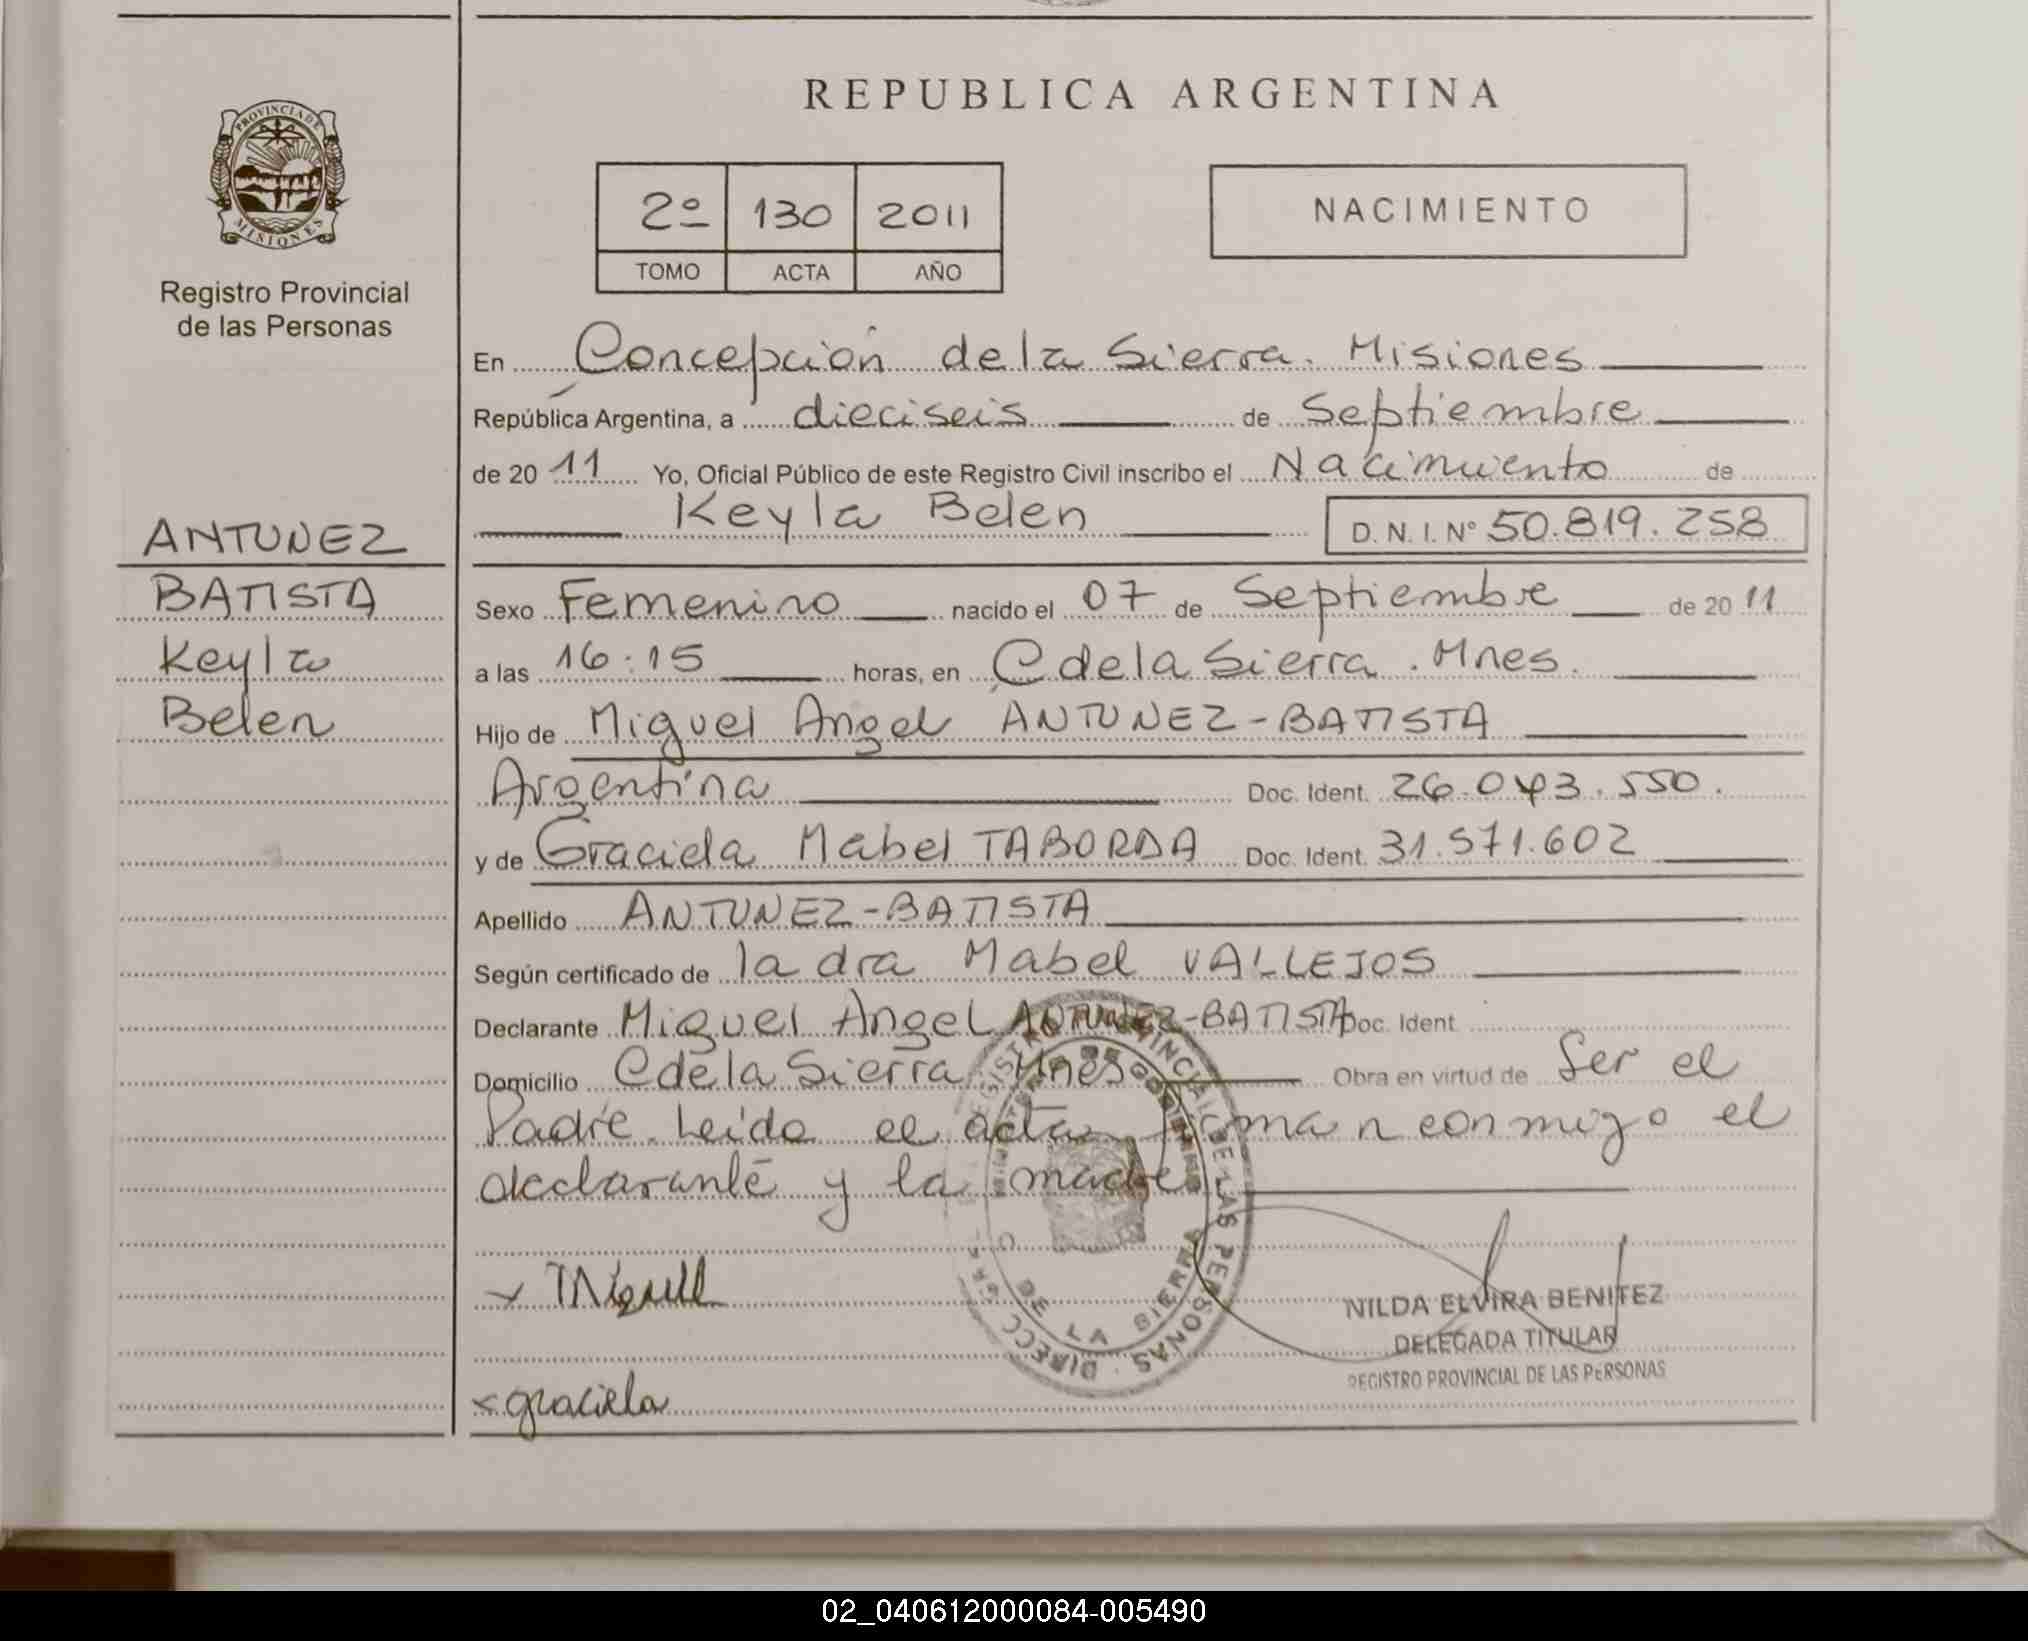 REPUBLICA ARGENTINA
PROVINCIA DE
MISIONES
Registro Provincial
de las Personas
2º 130 2011
TOMO ACTA AÑO
NACIMIENTO
En Concepción de la Sierra. Misiones
República Argentina, a dieciseis de Septiembre
de 20 11 Yo, Oficial Público de este Registro Civil inscribo el Nacimiento de
Keyla Belen D. N. I. Nº 50.819.258
ANTUNEZ
BATISTA
Keyla
Belen
Sexo Femenino nacido el 07 de Septiembre de 20 11
a las 16:15 horas, en C de la Sierra. Mnes.
Hijo de Miguel Angel ANTUNEZ-BATISTA
Argentina Doc. Ident. 26.043.550.
y de Graciela Mabel TABORDA Doc. Ident. 31.571.602
Apellido ANTUNEZ-BATISTA
Según certificado de la dra Mabel VALLEJOS
Declarante Miguel Angel ANTUNEZ-BATISTA Doc. Ident.
Domicilio C de la Sierra Mnes Obra en virtud de Ser el
Padre. Leido el acta firman conmigo el
declarante y la madre
Miguel
graciela
REGISTRO PROVINCIAL DE LAS PERSONAS
DE LA SIERRA
NILDA ELVIRA BENITEZ
DELEGADA TITULAR
REGISTRO PROVINCIAL DE LAS PERSONAS
02_040612000084-005490